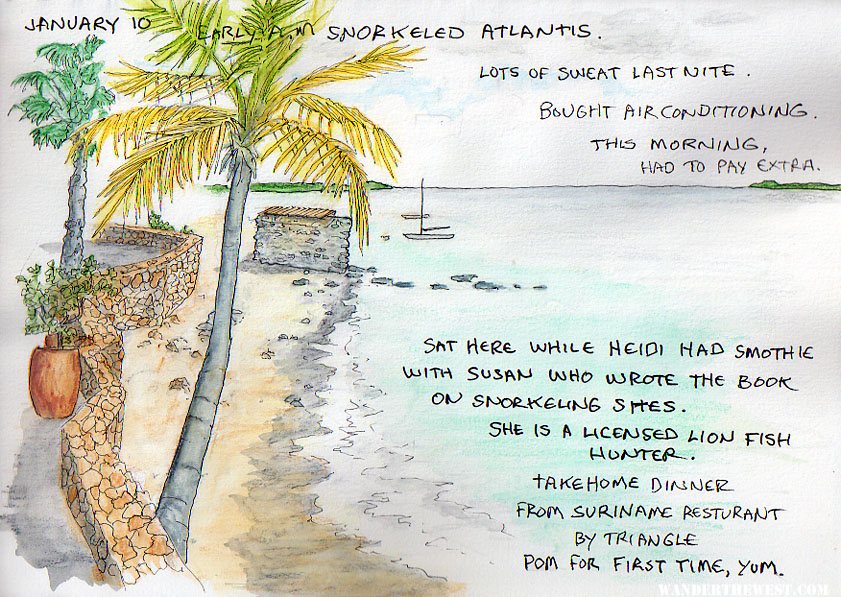 JANUARY 10
EARLY A.M SNORKELED ATLANTIS.
LOTS OF SWEAT LAST NITE.
BOUGHT AIR CONDITIONING.
THIS MORNING,
HAD TO PAY EXTRA.
SAT HERE WHILE HEIDI HAD SMOTHIE
WITH SUSAN WHO WROTE THE BOOK
ON SNORKELING SITES.
SHE IS A LICENSED LION FISH
HUNTER.
TAKEHOME DINNER
FROM SURINAME RESTURANT
BY TRIANGLE
POM FOR FIRST TIME, YUM.
WANDERTHEWEST.COM